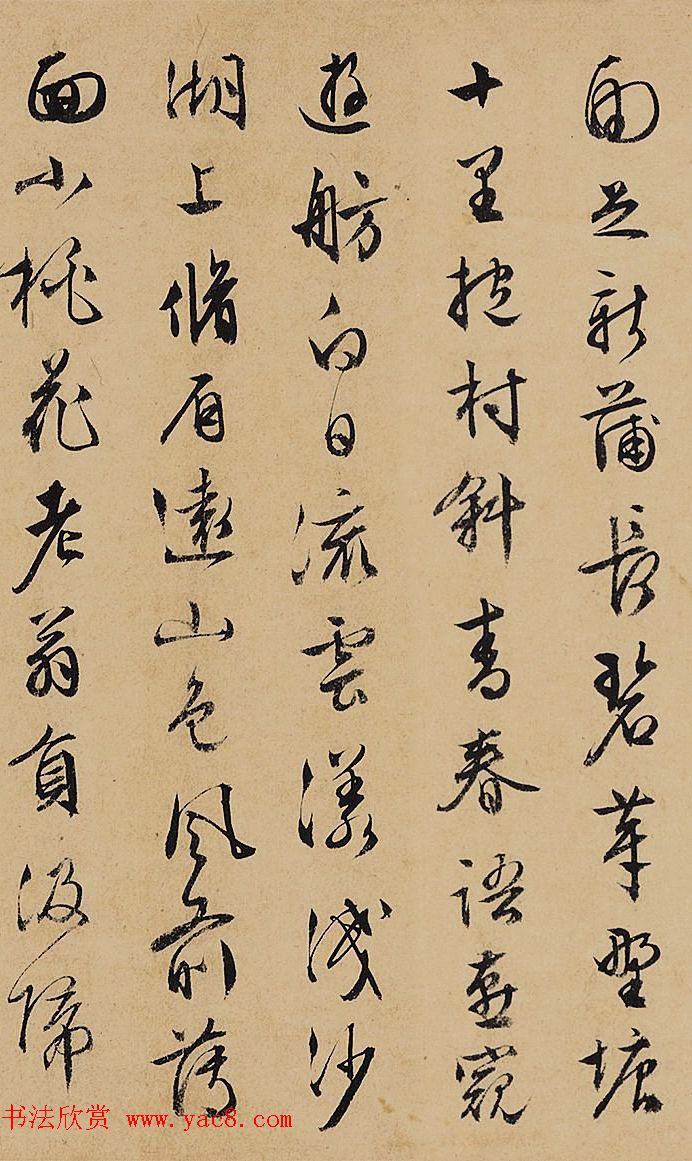 雨足新蒲長碧芽野塘
十里抱村斜青春語燕窺
遊舫白日流雲漾淺沙
湖上脩眉遠山色風前薄
面小桃花老翁負汲歸
书法欣赏 www.yac8.com